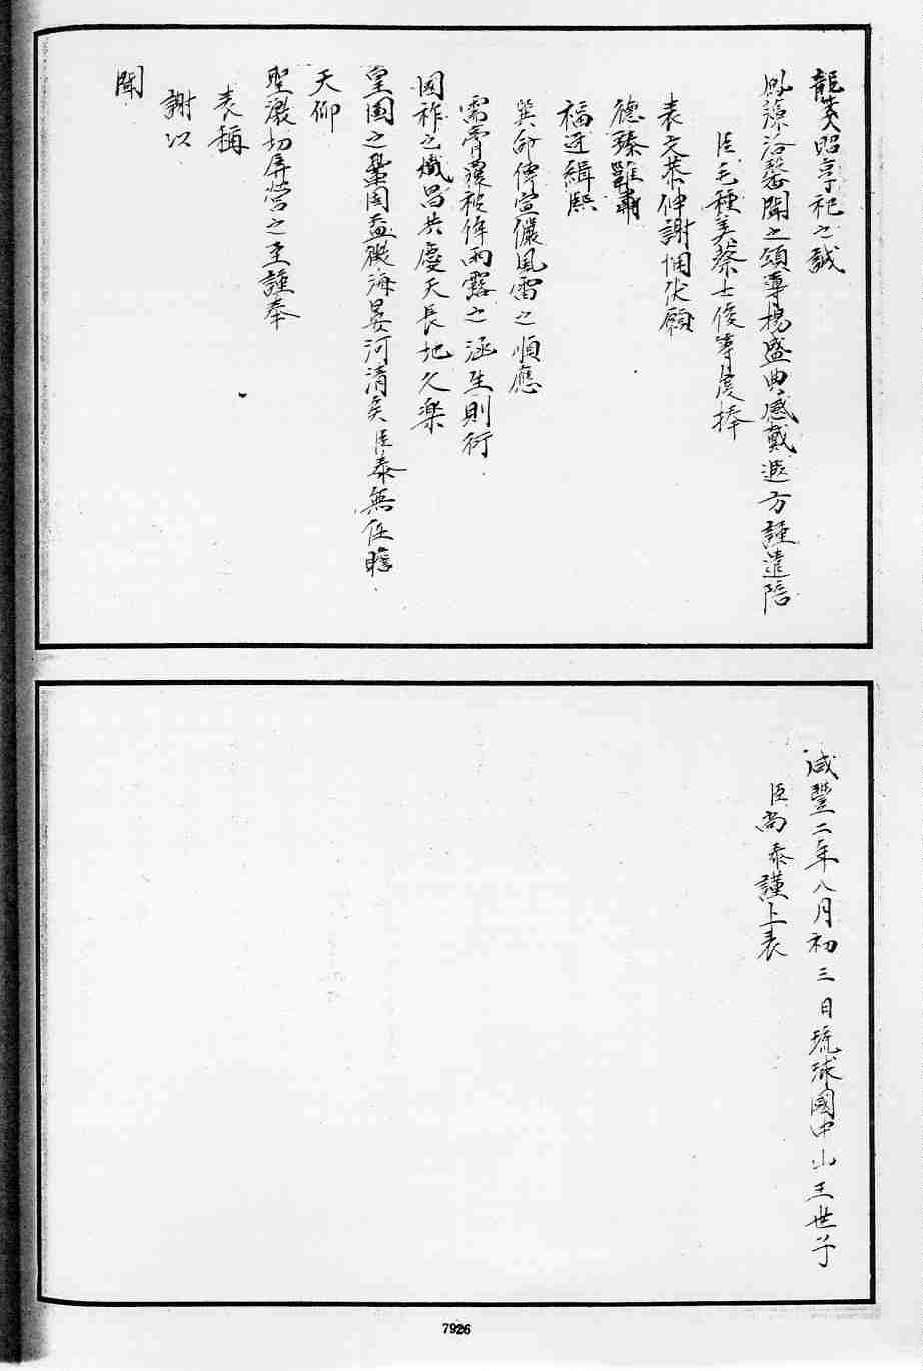 龍文昭享祀之誠
鳧藻洽馨聞之頌尊揚盛典感戴遐方謹遣陪
臣毛種美蔡士俊等虔捧
表文恭伸謝悃伏願
德臻雝肅
福迓緝熙
巽命傳宣儼風雷之順應
需膏濃被侔雨露之涵生則衍
國祚之熾昌共慶天長地久樂
皇國之鞏固益徵海晏河清矣臣泰無任瞻
天仰
聖激切屏營之至謹奉
表稱
謝以
聞
咸豐二年八月初三日琉球國中山王世子
臣尚泰謹上表
7926